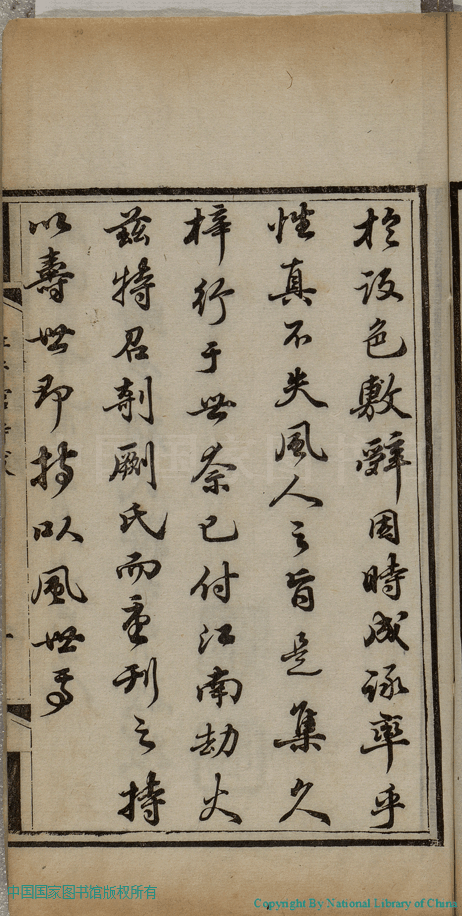 於設色敷辭因時成詠率乎
性真不失風人之旨是集久
梓行于世奈已付江南劫火
茲特召剞劂氏而重刊之持
以壽世即持以風世焉
中国国家图书馆版权所有
Copyright By National Library of China